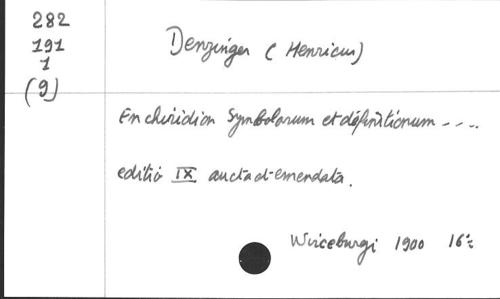 282
191
1
(9)
Denzinger (Henricus)
Enchiridion Symbolorum et définitionum ----
editio IX aucta et emendata.
Wirceburgi 1900 16º